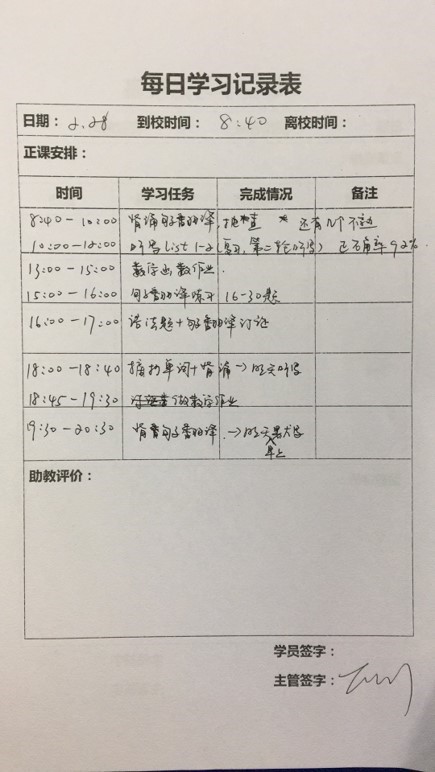 每日学习记录表
日期： 2.28 到校时间： 8:40 离校时间：
正课安排：
时间 学习任务 完成情况 备注
8:40-10:00 背诵句子翻译, 抽查 还有几个不过
10:00-12:00 听写 list 1-2 正确率 92%
13:00-15:00 数学出数作业.
15:00-16:00 句子翻译练习 16-30题
16:00-17:00 语法题+句子翻译讨论
18:00-18:40 摘抄单词+背诵→明天听写
18:45-19:30 做数学作业
19:30-20:30 背句子翻译.→明天早上
助教评价：
学员签字：
主管签字：